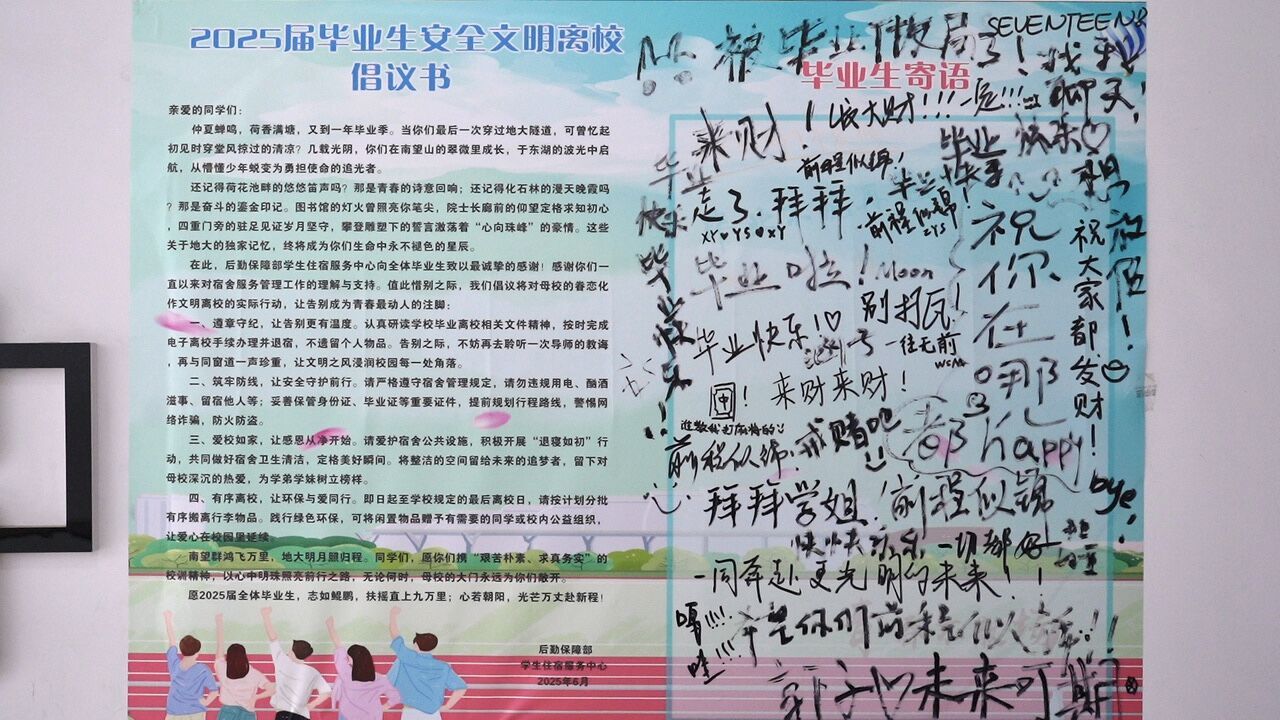 2025届毕业生安全文明离校
倡议书
亲爱的同学们：
仲夏蝉鸣，荷香满塘，又到一年毕业季。当你们最后一次穿过地大隧道，可曾忆起
初见时穿堂风掠过的清凉？几载光阴，你们在南望山的翠微里成长，于东湖的波光中启
航，从懵懂少年蜕变为勇担使命的追光者。
还记得荷花池畔的悠悠笛声吗？那是青春的诗意回响；还记得化石林的漫天晚霞吗
？那是奋斗的鎏金印记。图书馆的灯火曾照亮你笔尖，院士长廊前的仰望定格求知初心
，四重门旁的驻足见证岁月坚守，攀登雕塑下的誓言激荡着“心向珠峰”的豪情。这些
关于地大的独家记忆，终将成为你们生命中永不褪色的星辰。
在此，后勤保障部学生住宿服务中心向全体毕业生致以最诚挚的感谢！感谢你们一
直以来对宿舍服务管理工作的理解与支持。值此惜别之际，我们倡议将对母校的眷恋化
作文明离校的实际行动，让告别成为青春最动人的注脚：
一、遵章守纪，让告别更有温度。认真研读学校毕业离校相关文件精神，按时完成
电子离校手续办理并退宿，不遗留个人物品。告别之际，不妨再去聆听一次导师的教诲
，再与同窗道一声珍重，让文明之风浸润校园每一处角落。
二、筑牢防线，让安全守护前行。请严格遵守宿舍管理规定，请勿违规用电、酗酒
滋事、留宿他人等；妥善保管身份证、毕业证等重要证件，提前规划行程路线，警惕网
络诈骗，防火防盗。
三、爱校如家，让感恩从净开始。请爱护宿舍公共设施，积极开展“退寝如初”行
动，共同做好宿舍卫生清洁，定格美好瞬间。将整洁的空间留给未来的追梦者，留下对
母校深沉的热爱，为学弟学妹树立榜样。
四、有序离校，让环保与爱同行。即日起至学校规定的最后离校日，请按计划分批
有序搬离行李物品。践行绿色环保，可将闲置物品赠予有需要的同学或校内公益组织，
让爱心在校园里延续。
南望群鸿飞万里，地大明月照归程。同学们，愿你们携“艰苦朴素、求真务实”的
校训精神，以心中明珠照亮前行之路，无论何时，母校的大门永远为你们敞开。
愿2025届全体毕业生，志如鲲鹏，扶摇直上九万里；心若朝阳，光芒万丈赴新程！
后勤保障部
学生住宿服务中心
2025年6月
SEVENTEEN
被毕业做局了！
毕业生寄语
聊天！
来财！
发大财！！！一定！！！
毕业快乐♡
前程似锦！
毕业快乐
走了，拜拜，
XY♥YS♥XY
前程似锦！
ZYS
毕业啦！Moon
毕业快乐！！
毕业快乐！♡
别打瓦！
一往无前
WSM
！来财来财！
祝你在哪儿都happy
祝大家都发财！
前程似锦
戒赌吧
拜拜学姐！前程似锦
快快乐乐，一切都好
bye！
一同奔赴更光明的未来！！
嘎！！！！
哇！！！！
希望你们前程似锦！！！
未来可期